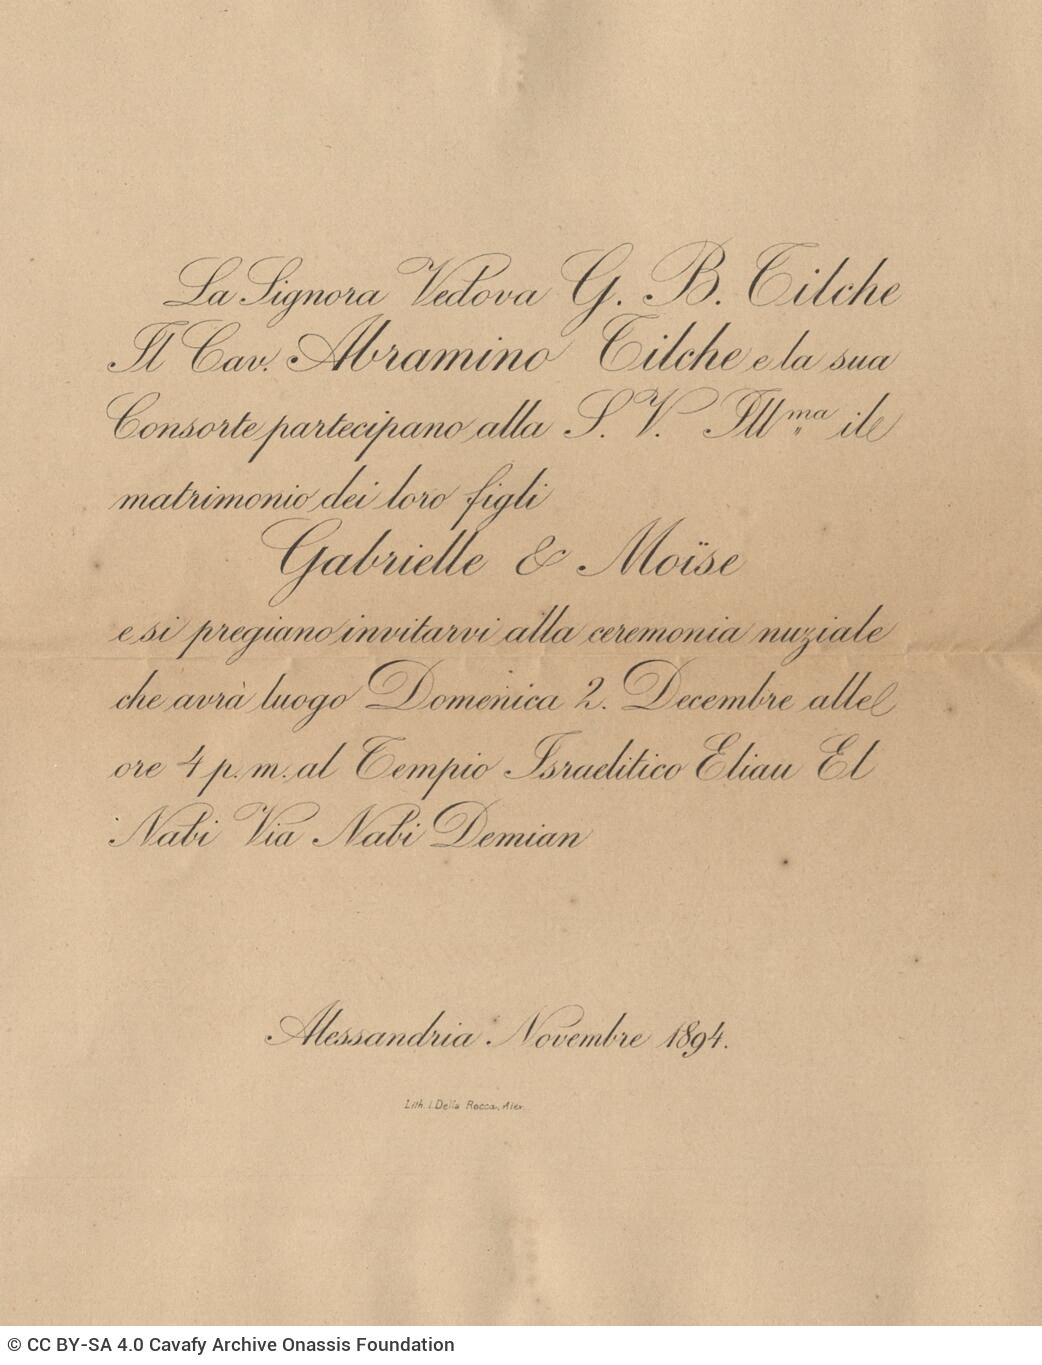 La Signora Vedova G. B. Tilche
Il Cav. Abramino Tilche e la sua
Consorte partecipano alla S. V. Illma il
matrimonio dei loro figli
Gabrielle & Moïse
e si pregiano invitarvi alla ceremonia nuziale
che avrà luogo Domenica 2. Decembre alle
ore 4 p.m. al Tempio Israelitico Eliau El
Nabi Via Nabi Demian
Alessandria Novembre 1894.
Lith. I. Della Rocca, Alex.
© CC BY-SA 4.0 Cavafy Archive Onassis Foundation